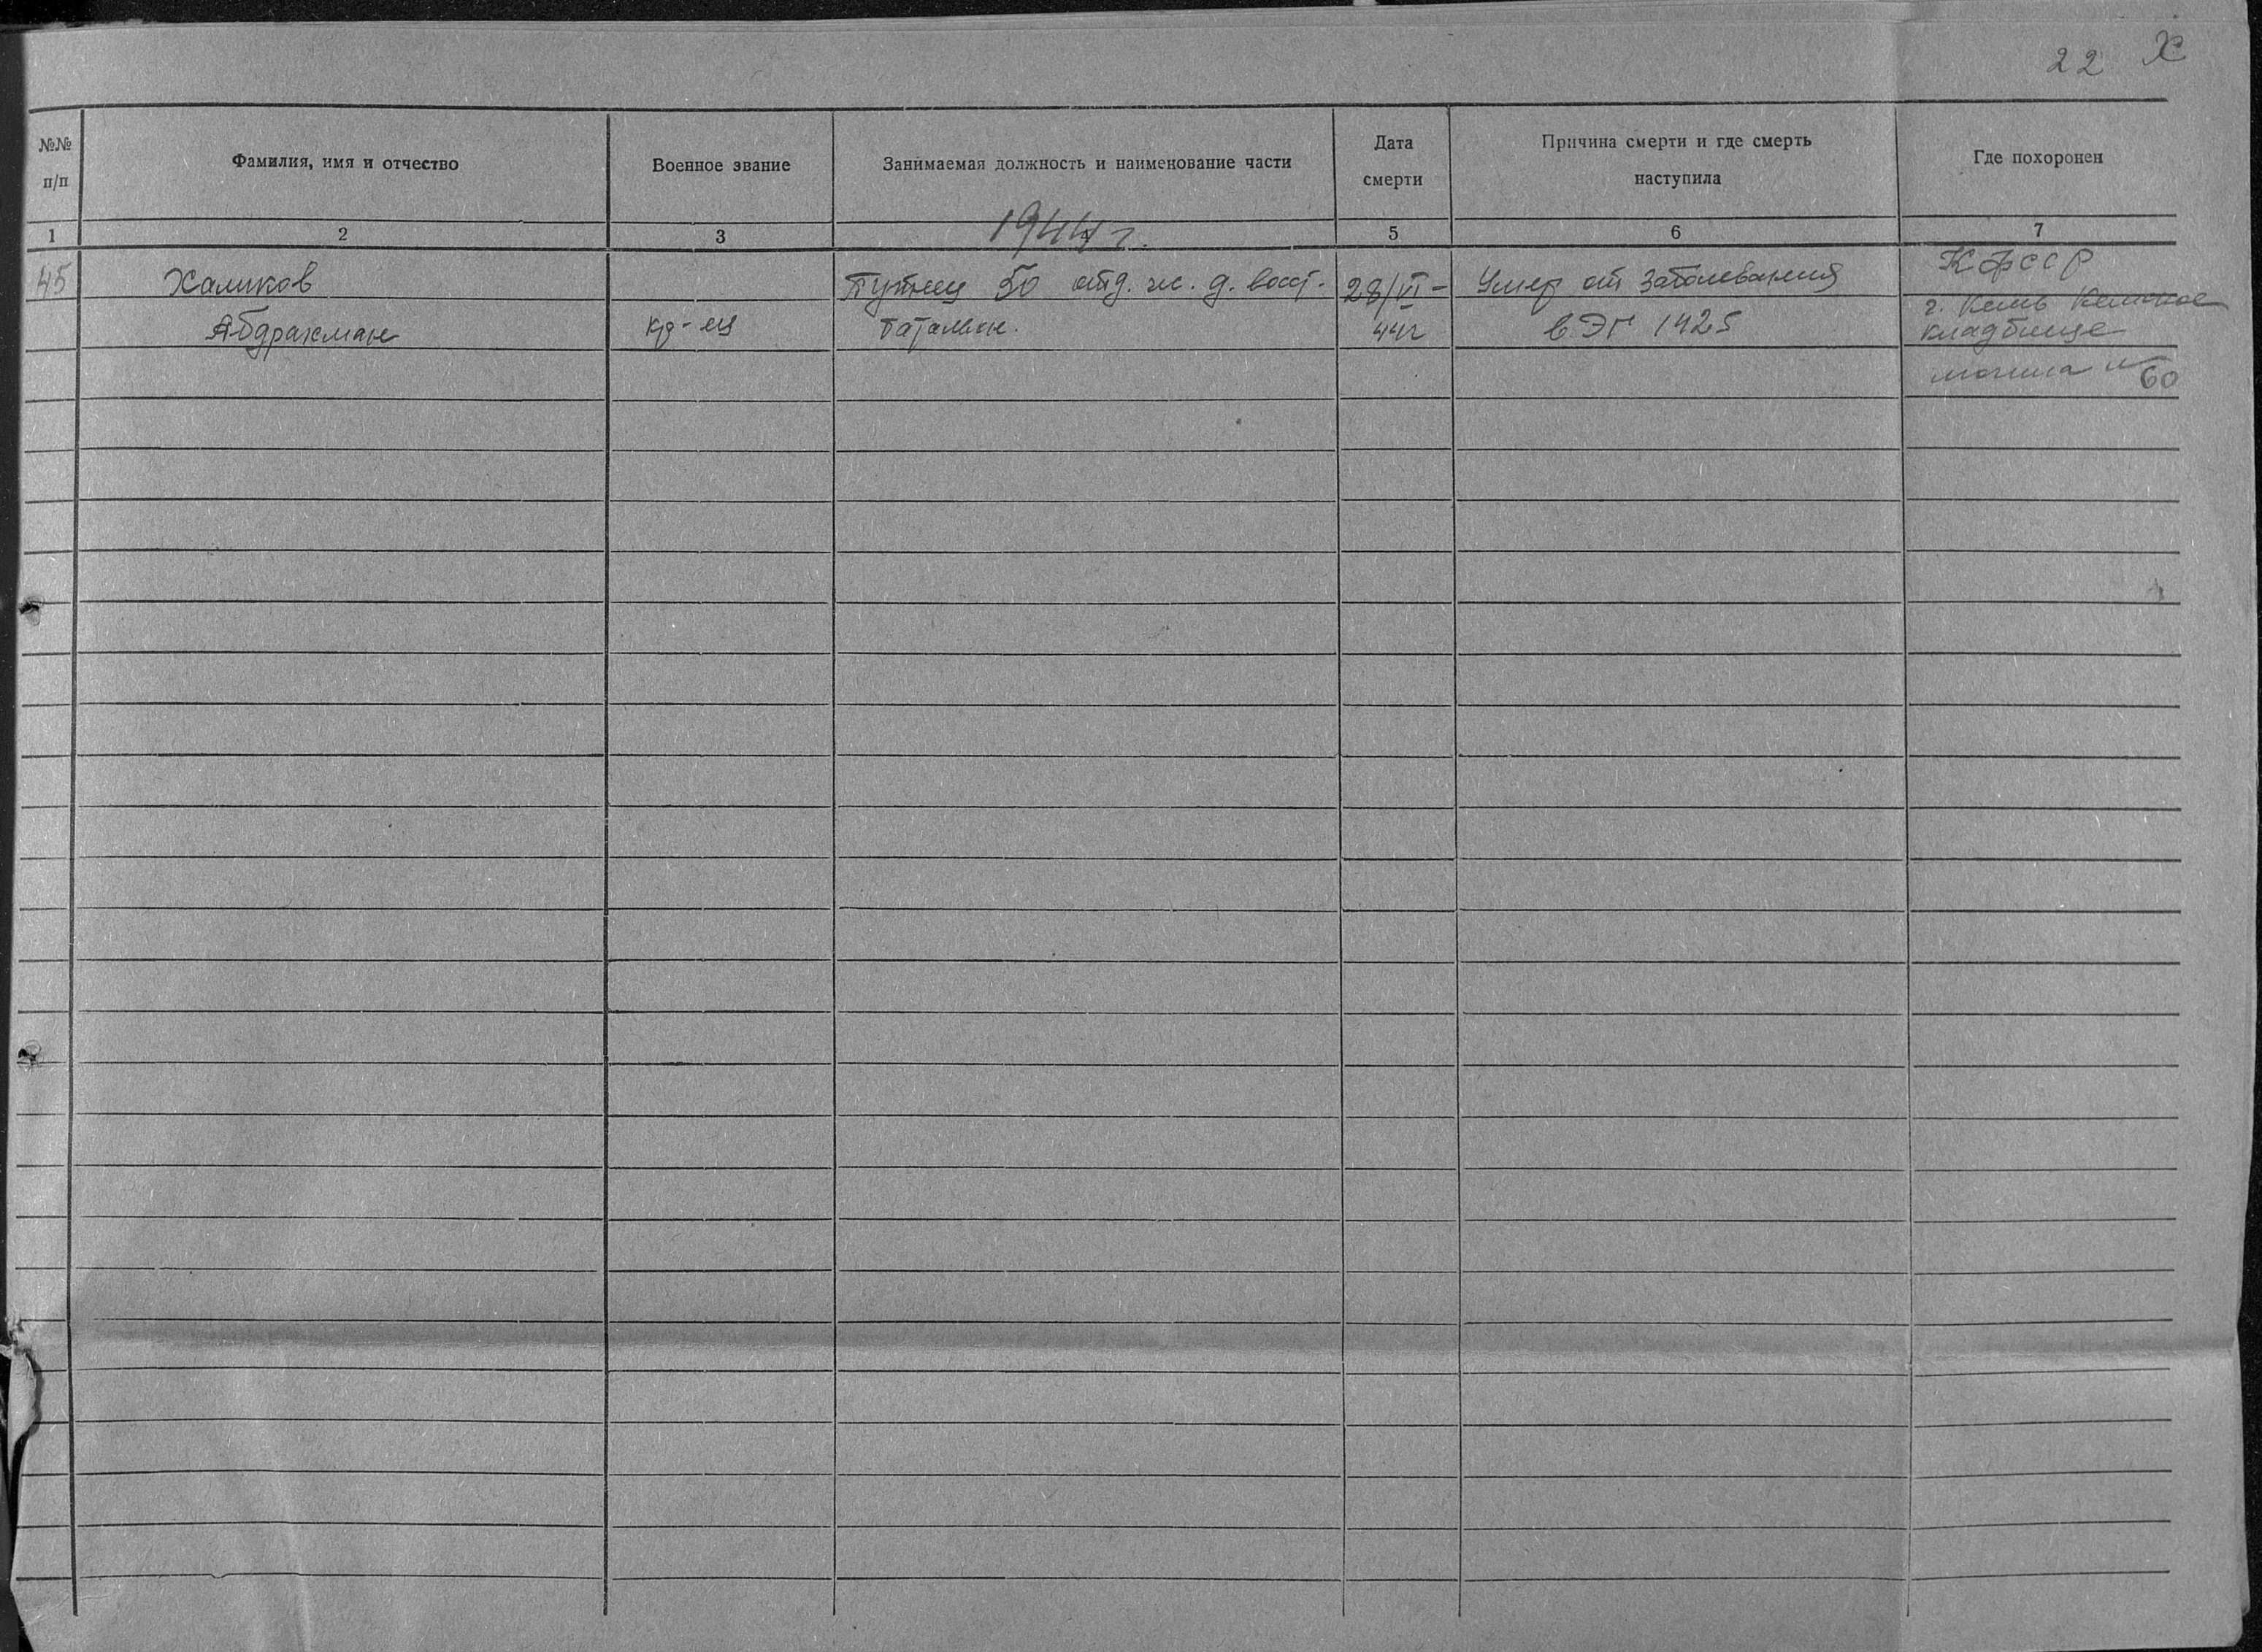 22 Х
№№ п/п
Фамилия, имя и отчество
Военное звание
Занимаемая должность и наименование части
Дата смерти
Причина смерти и где смерть наступила
Где похоронен
1 2 3 4 5 6 7
1944 г.
45 Халиков Путеец 50 отд. ж. д. восст. 28/VI- Умер от заболевания КФССР
Абдрахман кр-ец батальон. 44г в ЭГ 1425 г. Кемь Кемское кладбище
могила № 60